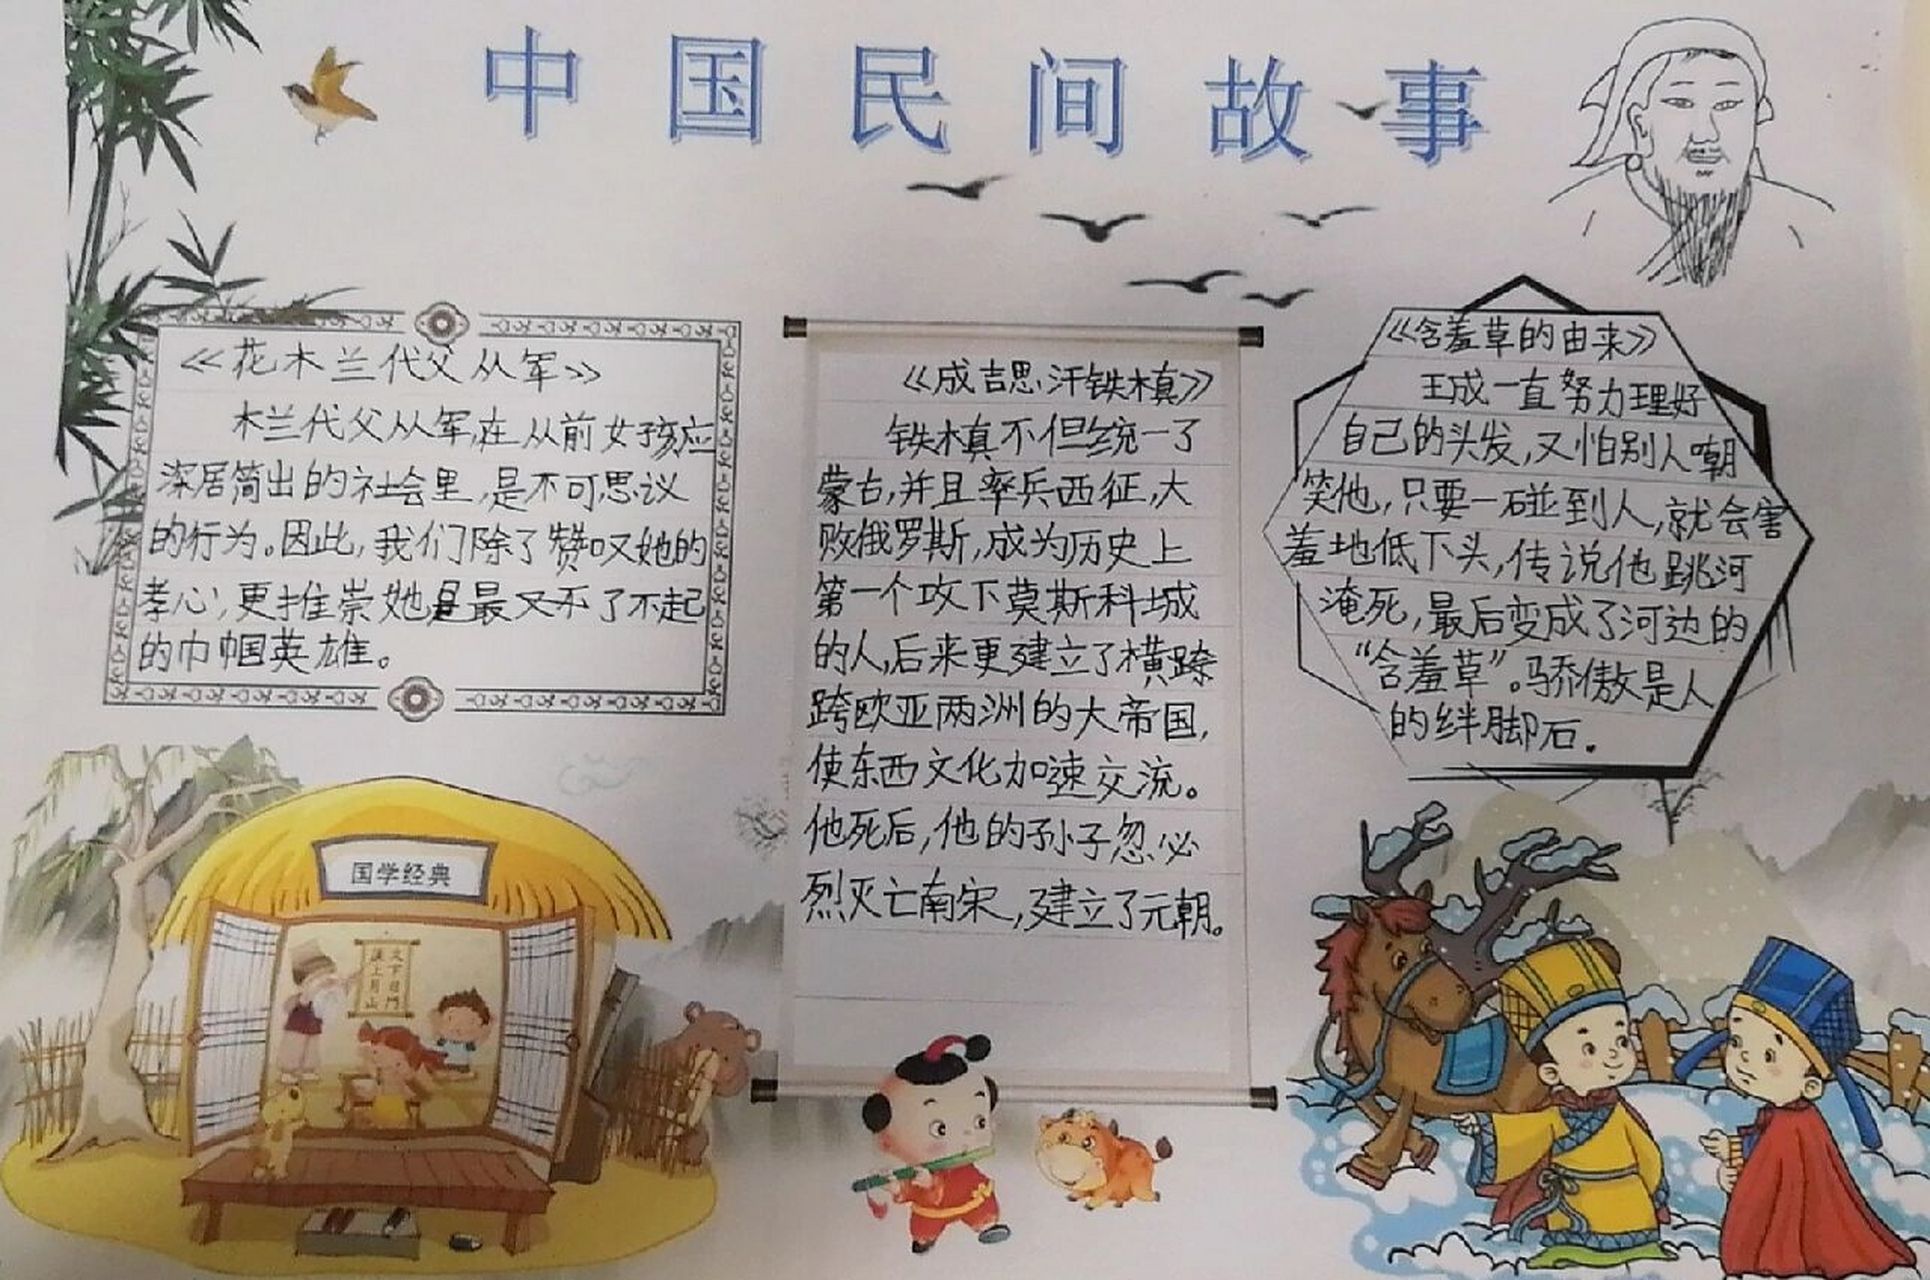 中国民间故事
《花木兰代父从军》
木兰代父从军,在从前女孩应
深居简出的社会里,是不可思议
的行为。因此,我们除了赞叹她的
孝心,更推崇她是最又不了不起
的巾帼英雄。
《成吉思汗铁木真》
铁木真不但统一了
蒙古,并且率兵西征,大
败俄罗斯,成为历史上
第一个攻下莫斯科城
的人,后来更建立了横跨
跨欧亚两洲的大帝国,
使东西文化加速交流。
他死后,他的孙子忽必
烈灭亡南宋,建立了元朝。
《含羞草的由来》
王成一直努力理好
自己的头发,又怕别人嘲
笑他,只要一碰到人,就会害
羞地低下头,传说他跳河
淹死,最后变成了河边的
“含羞草”。骄傲是人
的绊脚石。
国学经典